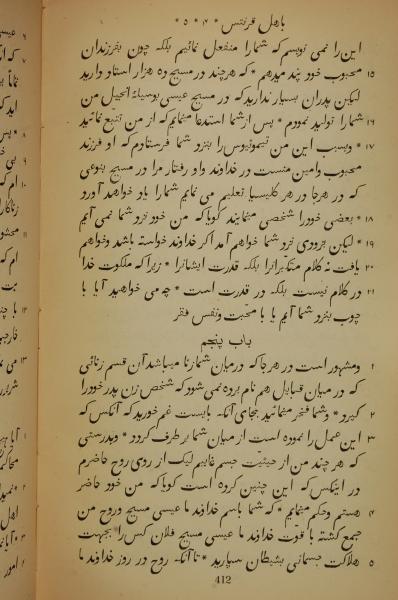 باهل قرنتس * ۴ * ۵ *
این را نمی نویسم که شمارا منفعل نمائیم بلکه چون بفرزندان
۱۵ محبوب خود پند میدهم * که هرچند در مسیح ده هزار استاد دارید
لیکن پدران بسیار ندارید که در مسیح عیسی بوسیلهٔ انجیل من
۱۶ شمارا تولید نمودم * پس از شما استدعا مینمایم که از من تتبع نمائید
۱۷ * وبسبب این من تیموتیوس را بنزد شما فرستادم که او فرزند
محبوب وامین منست در خداوند واو رفتار مرا در مسیح بنوعی
که در هرجا در هر کلیسیا تعلیم می نمایم شمارا یاد خواهد آورد
۱۸ * بعضی خودرا شخصی مینمایند کویا که من خود نزد شما نمی آیم
۱۹ * لیکن بزودی نزد شما خواهم آمد اکر خداوند خواسته باشد وخواهم
۲۰ یافت نه کلام متکبرانرا بلکه قدرت ایشانرا * زیرا که ملکوت خدا
۲۱ در کلام نیست بلکه در قدرت است * چه می خواهید آیا با
چوب بنزد شما آیم یا با محبت ونفس فقر
باب پنجم
۱ ومشهور است در هرجا که درمیان شما زنا میباشد آن قسم زنائی
که در میان قبایل هم نام برده نمی شود که شخص زن پدر خودرا
۲ کیرد * وشما فخر مینمائید بجای آنکه بایست غم خورید که آنکس که
۳ این عمل را نموده است از میان شما بر طرف کردد * وبدرستی
که هر چند من از حیثیت جسم غایبم لیک از روی روح حاضرم
در اینکس که این چنین کرده است کویا که من خود حاضر
۴ هستم وحکم مینمایم * که شما باسم خداوند ما عیسی مسیح وروح من
جمع کشته با قوت خداوند ما عیسی مسیح فلان کس را بجهت
۵ هلاکت جسمانی بشیطان سپارید * تا آنکه روح در روز خداوند ما
412